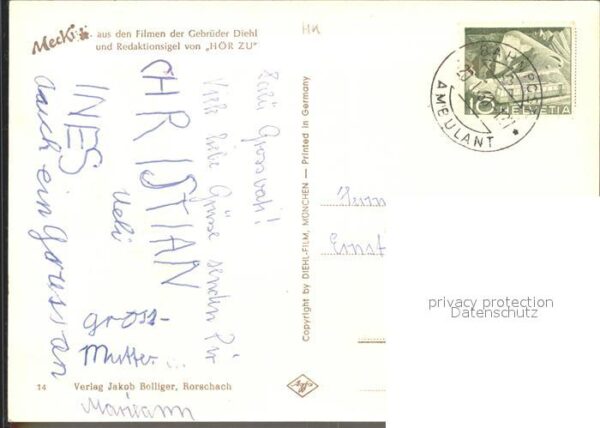 Mecki
aus den Filmen der Gebrüder Diehl
und Redaktionsigel von „HÖR ZU"
HELVETIA
10
AMBULANT
Grossvati!
Viele liebe Grüsse senden Dir
CHRISTIAN
Ueli
INES
auch ein Gruss an
gross-
Mutter...
Mariann
Copyright by DIEHL-FILM, MÜNCHEN — Printed in Germany
Herrn
Ernst
privacy protection
Datenschutz
14 Verlag Jakob Bolliger, Rorschach
Agfa